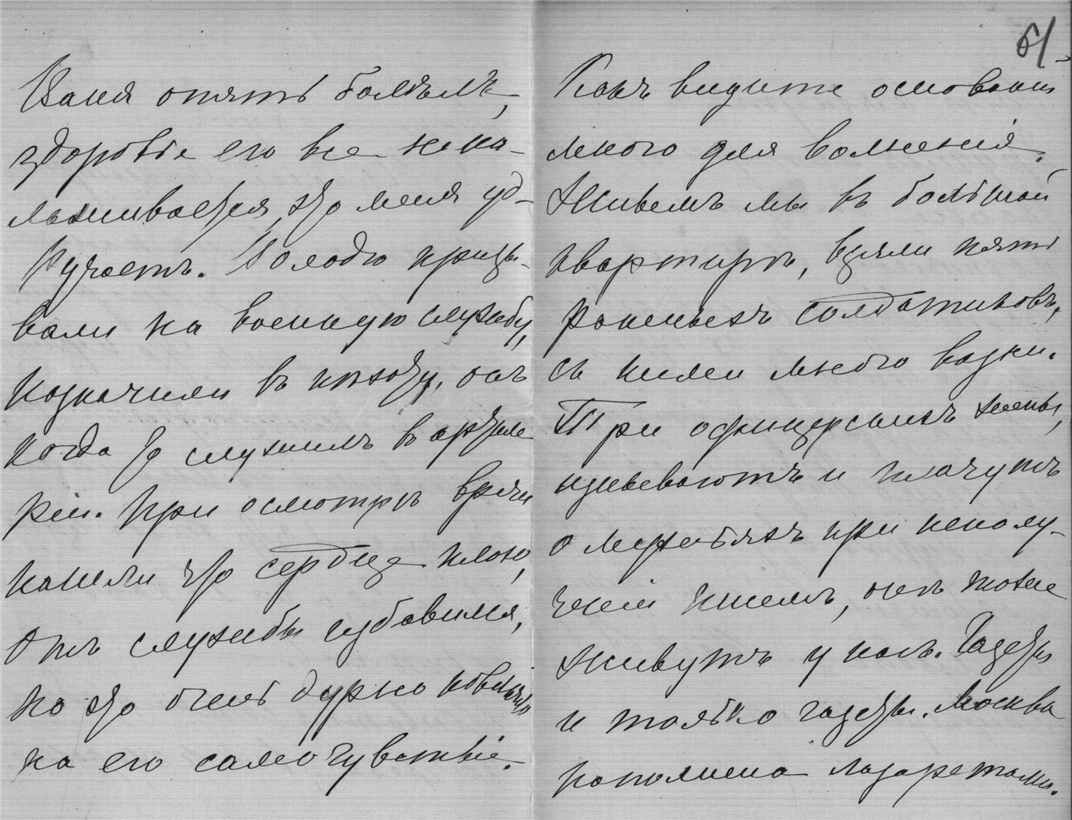 Ваня опять болѣлъ,
здоровіе его все нена-
лаживается, это меня уд-
ручаетъ. Володю призы-
вали на военную службу,
назначили въ пѣхоту, онъ
когда то служилъ въ артиле
ріи. При осмотрѣ врачи
нашли что сердце плохо,
отъ службы избавился,
но это очень дурно повліяло
на его самочувствіе.
51
Какъ видите основаній
много для волненія.
Живемъ мы въ большой
квартирѣ, взяли пять
раненыхъ солдатиковъ,
съ ними много возни.
Три офицерскихъ жены,
изнываютъ и плачутъ
о мужьяхъ при неполу-
ченіи писемъ, онѣ тоже
живутъ у насъ. Газеты
и только газеты. Москва
наполнена лазаретами.